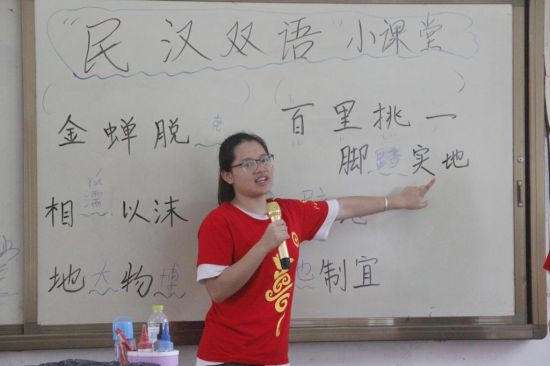 “民汉双语”小课堂
金蝉脱
百里挑一
脚踏实地
相濡以沫
地大物博
制宜